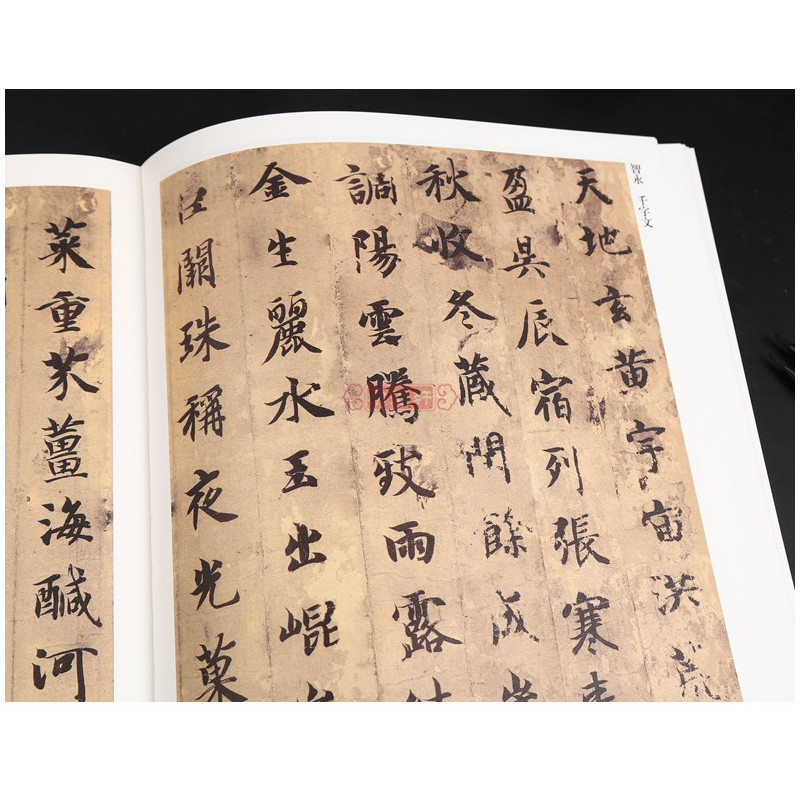 智永 千字文
天地玄黄宇宙洪荒
盈昃辰宿列張寒
秋收冬藏閏餘成
調陽雲騰致雨露
金生麗水玉出崐
闕珠稱夜光菓
菜重芥薑海鹹河